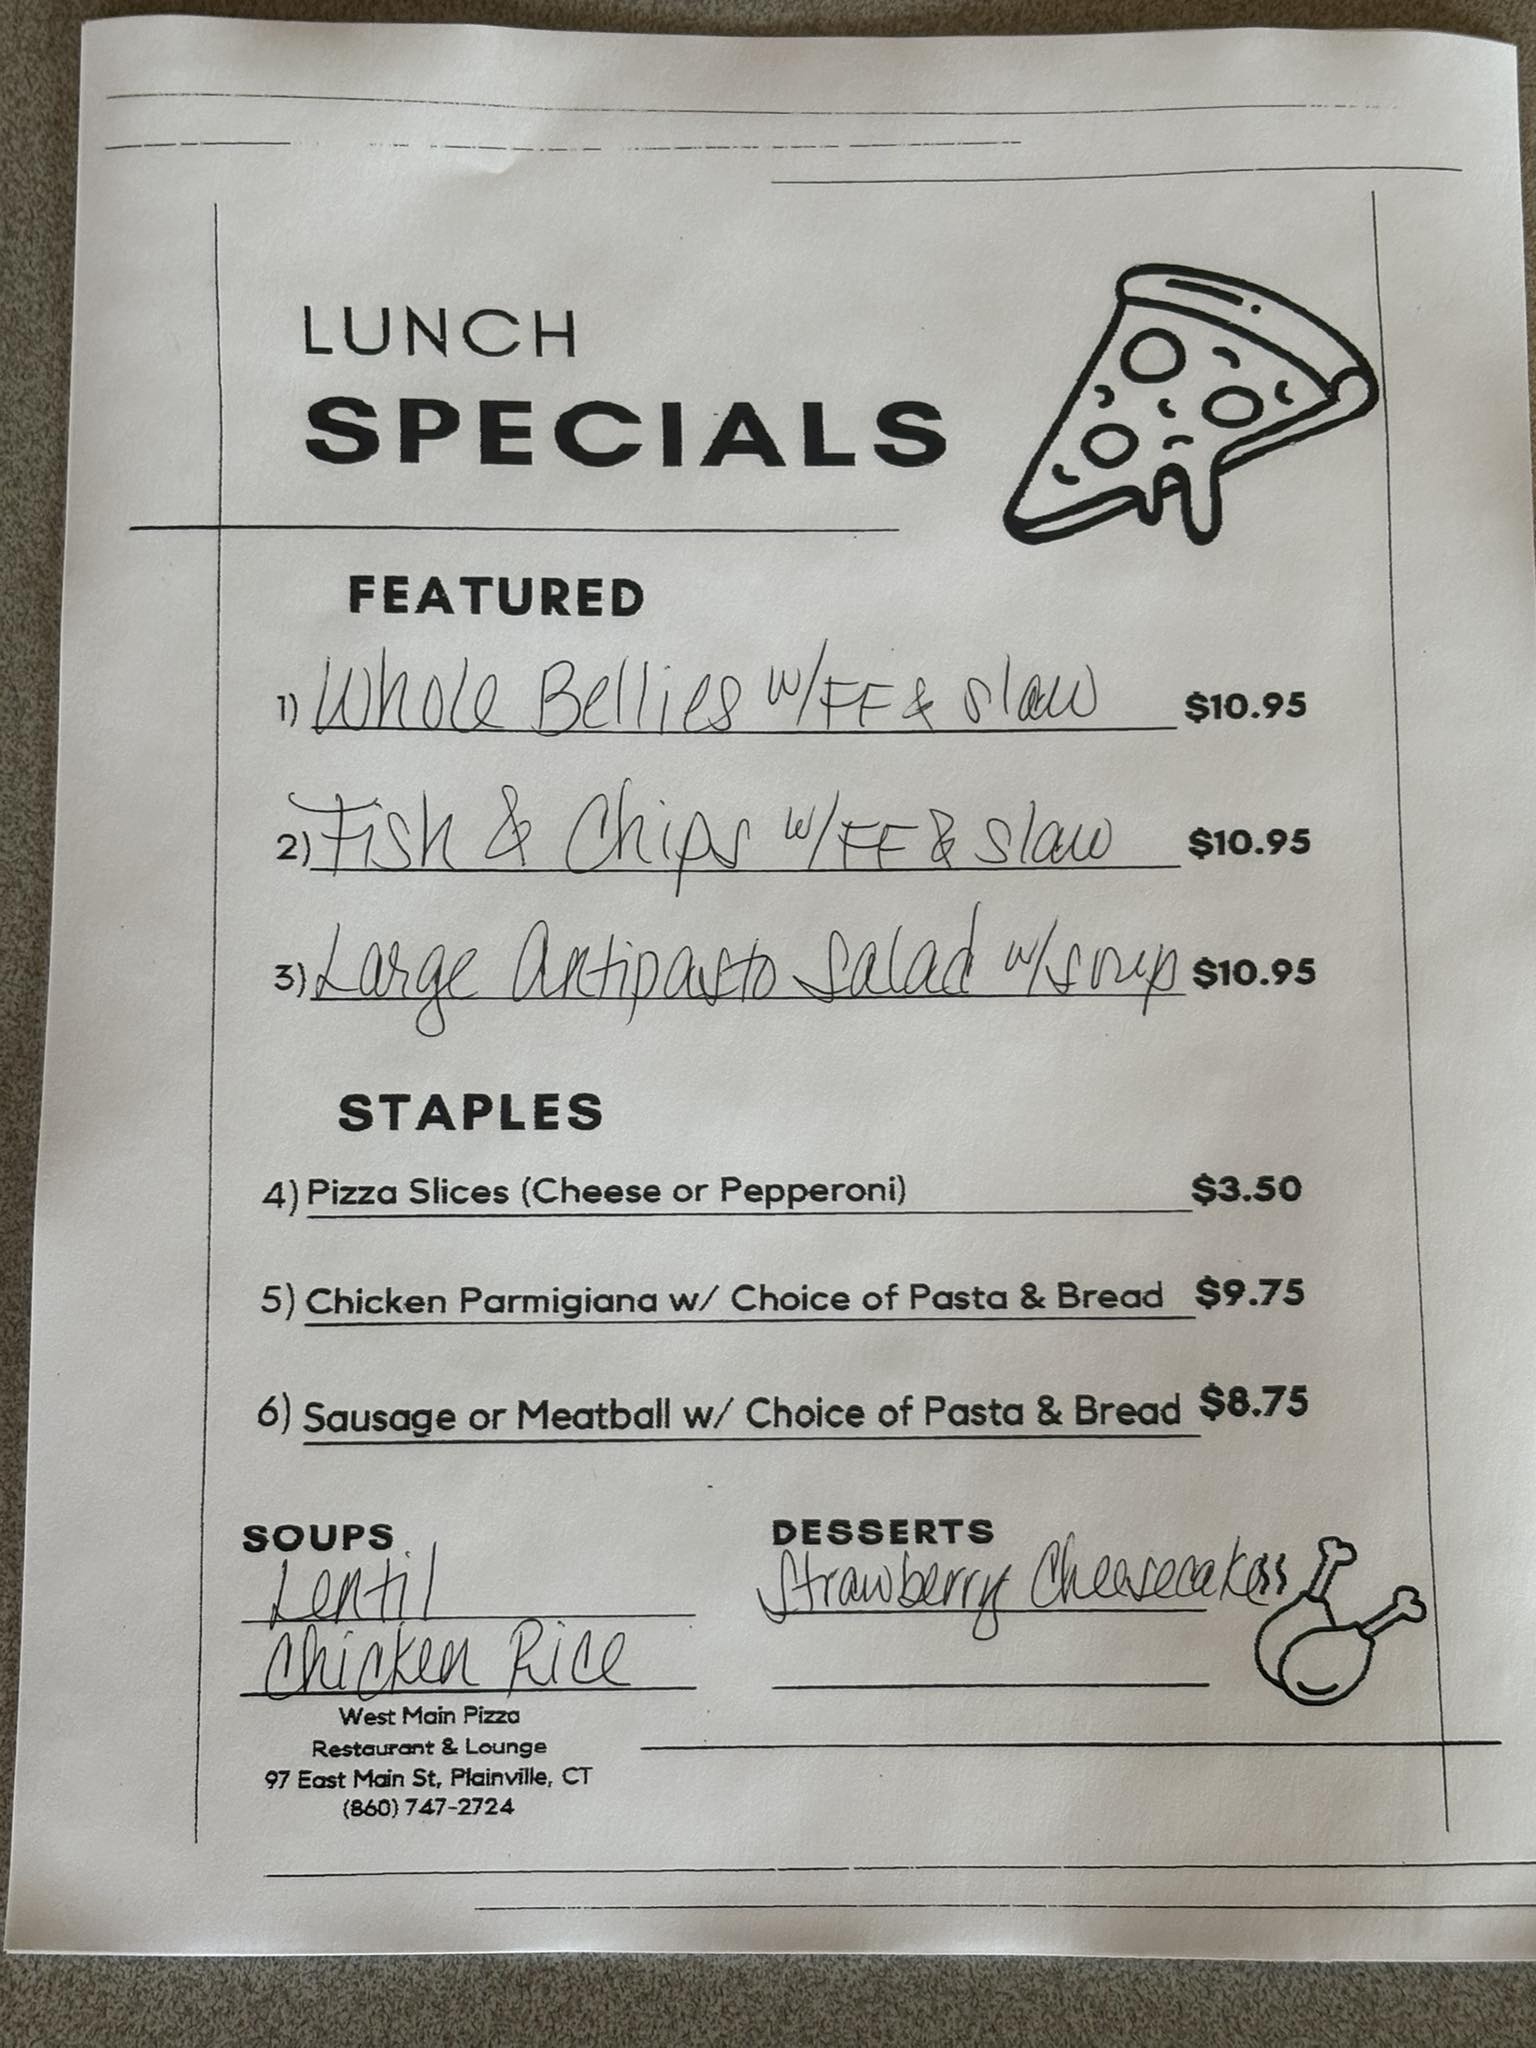 LUNCH
SPECIALS
FEATURED
1) Whole Bellies w/FF & slaw $10.95
2) Fish & Chips w/FF & slaw $10.95
3) Large Antipasto Salad w/soup $10.95
STAPLES
4) Pizza Slices (Cheese or Pepperoni) $3.50
5) Chicken Parmigiana w/ Choice of Pasta & Bread $9.75
6) Sausage or Meatball w/ Choice of Pasta & Bread $8.75
SOUPS
Lentil
Chicken Rice
DESSERTS
Strawberry Cheesecakess
West Main Pizza
Restaurant & Lounge
97 East Main St, Plainville, CT
(860) 747-2724